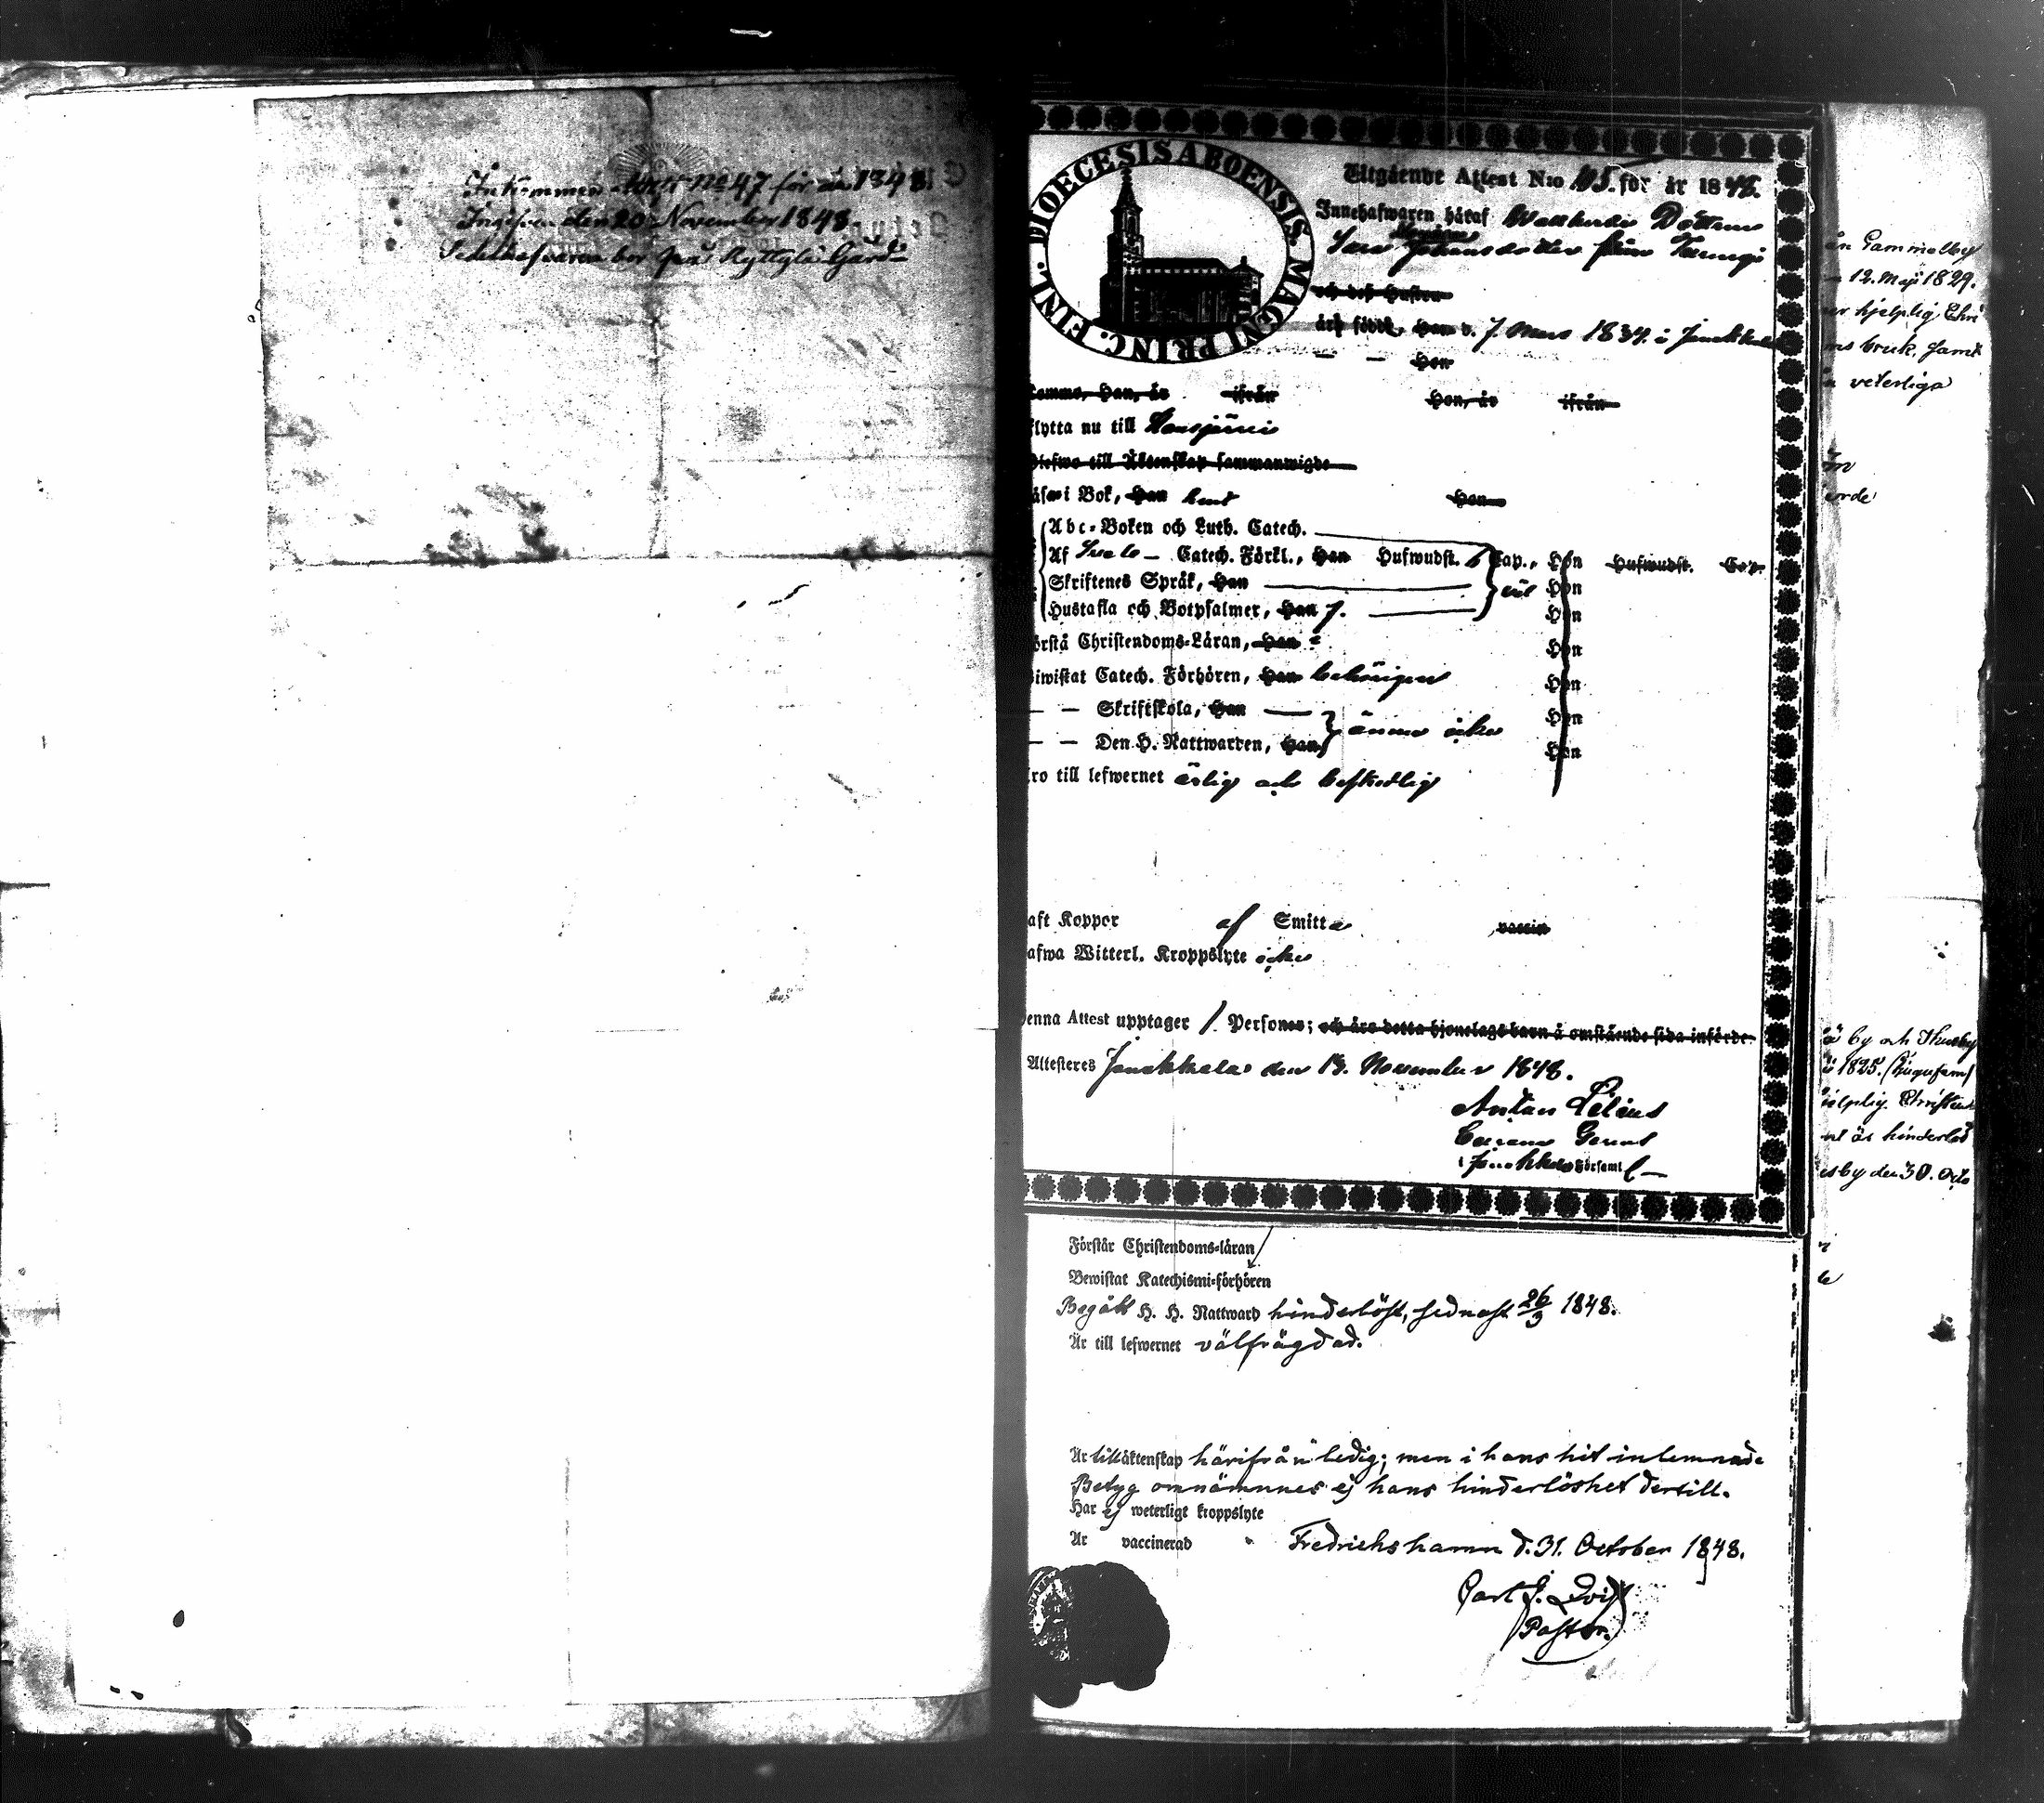 Inkommen Attest No 47 för år 1848.
Ingifven den 20 November 1848.
Sedelhafvaren bor på Ryttylä Gård
FINL. DIOECESIS ABOENSIS. MAGNI PRINC.
Utgående Attest N:o 105. för år 1848.
Innehafwaren häraf Dottren
Johansdotter från
och deß Hustru
är född, Han d. 7. Mars 1834. i Janakkala
— — Hon
Komne, Han, år ifrån Hon, år ifrån
flytta nu till Hausjärvi
Blefwo till Äktenskap sammanwigde
läsa i Bok, Han Hon
Abc-Boken och Luth. Catech.
Af Svebe— Catech. Förkl., Han Hufwudst. 6 Cap., Hon Hufwudst. Cap.
Skriftenes Språk, Han väl Hon
Hustafla och Botpsalmer, Han 7. Hon
örstå Christendoms-Läran, Han Hon
iwistat Catech. Förhören, Han behörigen Hon
— — Skriftskola, Han ännu icke Hon
— — Den H. Nattwarden, Han Hon
ro till lefwernet ärlig och beskedlig
aft Koppor af Smitta vaccin
afwa Witterl. Kroppslyte icke
enna Attest upptager 1. Persones; och äro detta hjonelags barn å omstående sida införde.
Attesteres Janakkala den 13. November 1848.
Antan Lilius
i Janakkala Församl
Förstår Christendoms-läran
Bewistat Katechismi-förhören
Begått H. H. Nattward hinderlöst, sednast 26/3 1848.
Är till lefwernet välfrägdad.
Är till äktenskap härifrån ledig; men i hans hit inlemnade
Betyg omnämnes ej hans hinderlöshet dertill.
Har ej weterligt kroppslyte
Är vaccinerad Fredrikshamn d. 31. October 1848.
Carl J.
Pastor.
ån Gammelby
12. Maji 1829.
er hjelplig Chri
ms bruk, samt
n veterliga
ån
erde
ä by och Thusby
1825.
jelplig Christen
nt är hinderlös
esby den 30. Octo